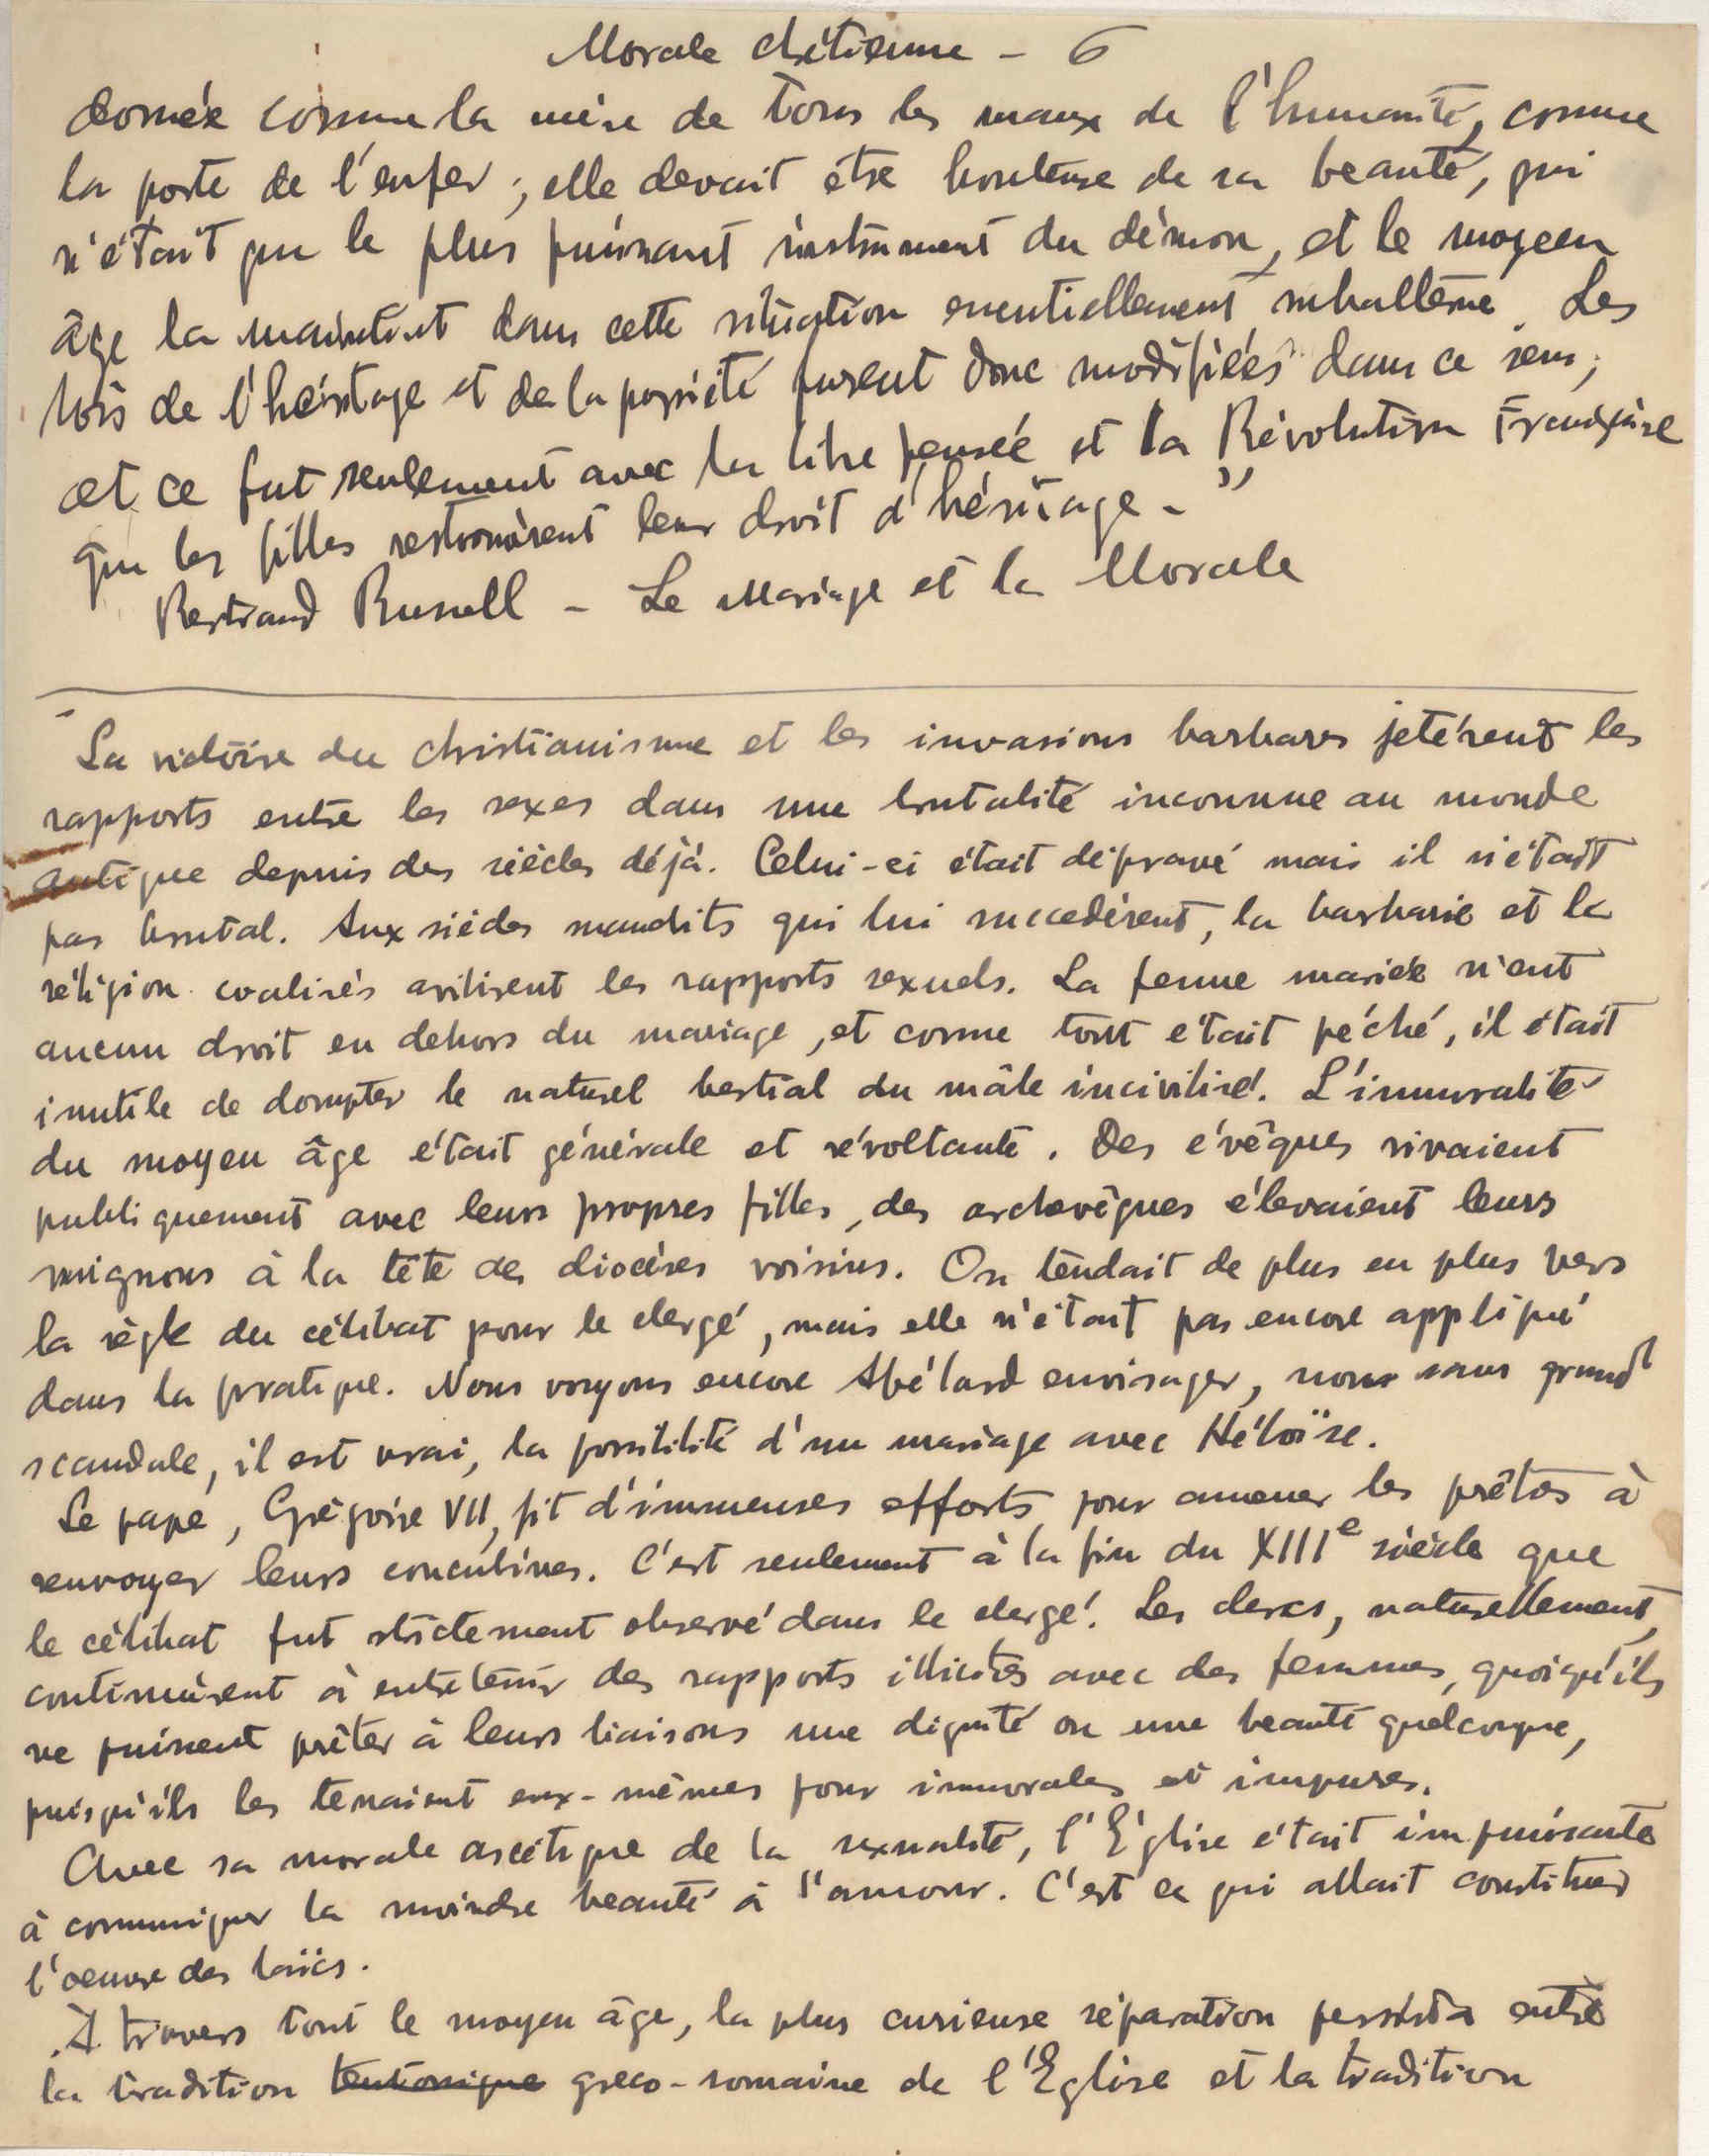 Morale chrétienne - 6
donnée comme la mère de tous les maux de l'humanité, comme
la porte de l'enfer ; elle devait être honteuse de sa beauté, qui
n'était que le plus puissant instrument du démon, et le moyen
âge la maintint dans cette situation essentiellement subalterne. Les
lois de l'héritage et de la propriété furent donc modifiées dans ce sens,
et ce fut seulement avec la libre pensée et la Révolution Française
que les filles retrouvèrent leur droit d'héritage - "
Bertrand Russell - Le Mariage et la Morale
La victoire du christianisme et les invasions barbares jetèrent les
rapports entre les sexes dans une brutalité inconnue au monde
antique depuis des siècles déjà. Celui-ci était dépravé mais il n'était
pas brutal. Aux siècles maudits qui lui succédèrent, la barbarie et la
réligion coalisés avilirent les rapports sexuels. La femme mariée n'eut
aucun droit en dehors du mariage, et comme tout était péché, il était
inutile de dompter le naturel bestial du mâle incivilisé. L'immoralité
du moyen âge était générale et révoltante. Des évêques vivaient
publiquement avec leurs propres filles, des archevêques élevaient leurs
mignons à la tête des diocèses voisins. On tendait de plus en plus vers
la règle du célibat pour le clergé, mais elle n'était pas encore appliqué
dans la pratique. Nous voyons encore Abélard envisager, non sans grand
scandale, il est vrai, la possibilité d'un mariage avec Héloïse.
Le pape, Grégoire VII, fit d'immenses efforts pour amener les prêtres à
renvoyer leurs concubines. C'est seulement à la fin du XIIIe siècle que
le célibat fut strictement observé dans le clergé. Les clercs, naturellement,
continuèrent à entretenir des rapports illicites avec des femmes, quoiqu'ils
ne puissent prêter à leurs liaisons une dignité ou une beauté quelconque,
puisqu'ils les tenaient eux-mêmes pour immorales et impures.
Avec sa morale ascétique de la sexualité, l'Église était impuissante
à communiquer la moindre beauté à l'amour. C'est ce qui allait constituer
l'oeuvre des laïcs.
A travers tout le moyen âge, la plus curieuse séparation persista entre
la tradition teutonique greco-romaine de l'Eglise et la tradition